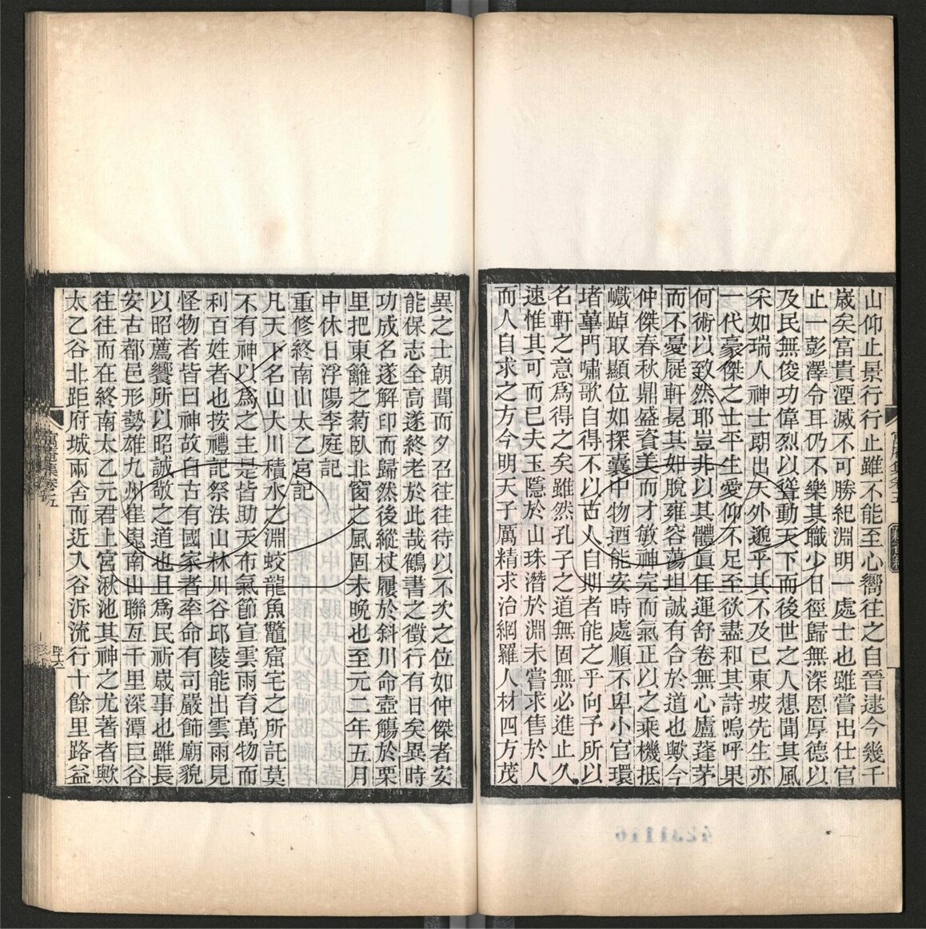 山仰止景行行止雖不能至心嚮往之自晉逮今幾千
嵗矣富貴湮滅不可勝紀淵明一處士也雖嘗出仕官
止一彭澤令耳仍不樂其職少日徑歸無深恩厚德以
及民無俊功偉烈以聳動天下而後世之人想聞其風
采如瑞人神士朗出天外邈乎其不及已東坡先生亦
一代豪傑之士平生愛仰不足至欲盡和其詩嗚呼果
何術以致然耶豈非以其體眞任運舒卷無心廬蓬茅
而不憂屣軒冕其如脫雍容蕩坦誠有合於道也歟今
仲傑春秋鼎盛資美而才敏神完而氣正以之乘機抵
巇踔取顯位如探囊中物迺能安時處順不卑小官環
堵蓽門嘯歌自得不以古人自期者能之乎向予所以
名軒之意爲得之矣雖然孔子之道無固無必進止久
速惟其可而已夫玉隱於山珠潛於淵未嘗求售於人
而人自求之方今明天子厲精求治綱羅人材四方茂
異之士朝聞而夕召往往待以不次之位如仲傑者安
能保志全高遂終老於此哉鶴書之徵行有日矣異時
功成名遂解印而歸然後縱杖履於斜川命壺觴於栗
里把東籬之菊臥北窗之風固未晚也至元二年五月
中休日浮陽李庭記
重修終南山太乙宮記
凡天下名山大川積水之淵蛟龍魚鼈窟宅之所託莫
不有神以爲之主是皆助天布氣節宣雲雨育萬物而
利百姓者也按禮記祭法山林川谷邱陵能出雲雨見
怪物者皆曰神故自古有國家者率命有司嚴飾廟貌
以昭薦饗所以昭誠敬之道也且爲民祈嵗事也雖長
安古都邑形勢雄九州崔嵬南出聯亙千里深潭巨谷
往往而在終南太乙元君上宮湫池其神之尤著者歟
太乙谷北距府城兩舍而近入谷泝流行十餘里路益